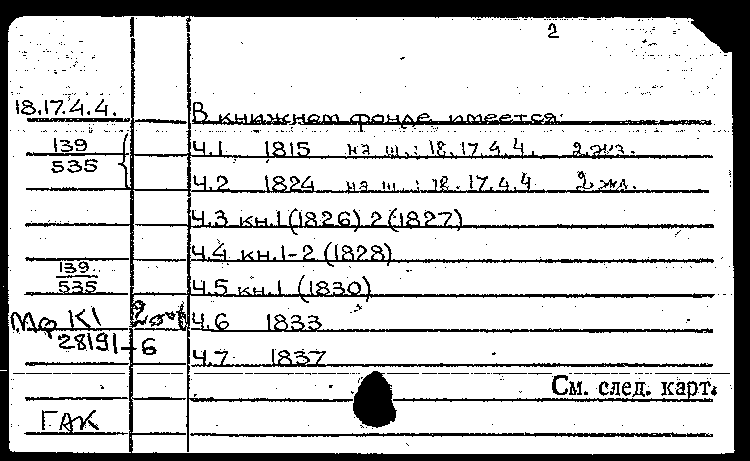 2
18.17.4.4. В книжном фонде имеется:
139 Ч.1 1815 на ш.: 18.17.4.4. 2 экз.
535
Ч.2 1824 на ш.: 18.17.4.4 2 экз.
Ч.3 кн.1 (1826) 2 (1827)
Ч.4 кн.1-2 (1828)
139
535 Ч.5 кн.1 (1830)
Мф К1 Ч.6 1833
28191-6
Ч.7 1837
См. след. карт.
ГАК